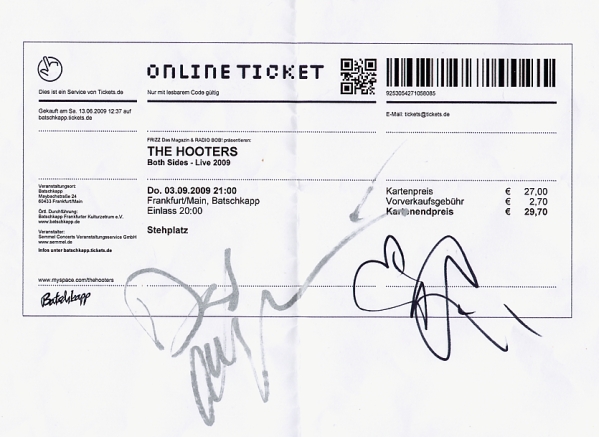 ONLINETICKET
Dies ist ein Service von Tickets.de
Nur mit lesbarem Code gültig
9253054271058085
Gekauft am Sa. 13.06.2009 12:37 auf
batschkapp.tickets.de
E-Mail: tickets@tickets.de
FRIZZ Das Magazin & RADIO BOB! präsentieren:
THE HOOTERS
Both Sides - Live 2009
Veranstaltungsort:
Batschkapp
Maybachstraße 24
60433 Frankfurt/Main
Örtl. Durchführung:
Batschkapp Frankfurter Kulturzentrum e.V.
www.batschkapp.de
Veranstalter:
Semmel Concerts Veranstaltungsservice GmbH
www.semmel.de
Infos unter batschkapp.tickets.de
Do. 03.09.2009 21:00
Frankfurt/Main, Batschkapp
Einlass 20:00
Stehplatz
Kartenpreis € 27,00
Vorverkaufsgebühr € 2,70
Kartenendpreis € 29,70
www.myspace.com/thehooters
Batschkapp